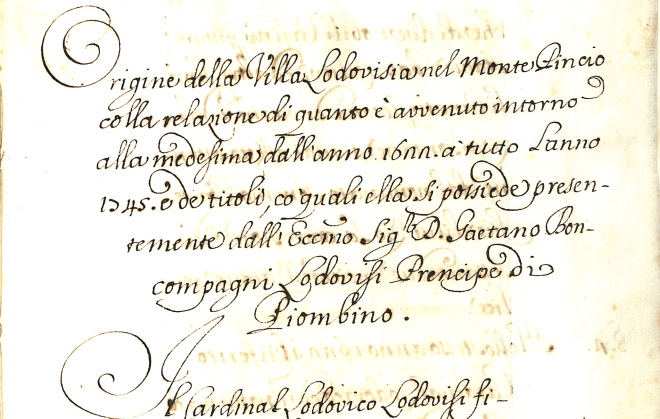 Origine della Villa Lodovisia nel Monte Pincio
colla relazione di quanto è avvenuto intorno
alla medesima dall'anno 1622. à tutto l'anno
1745. e de titoli, co quali ella si possiede presen-
temente dall' Eccmo Sigr D. Gaetano Bon-
compagni Lodovisi Prencipe di
Piombino.
Il Cardinal Lodovico Lodovisi fi-